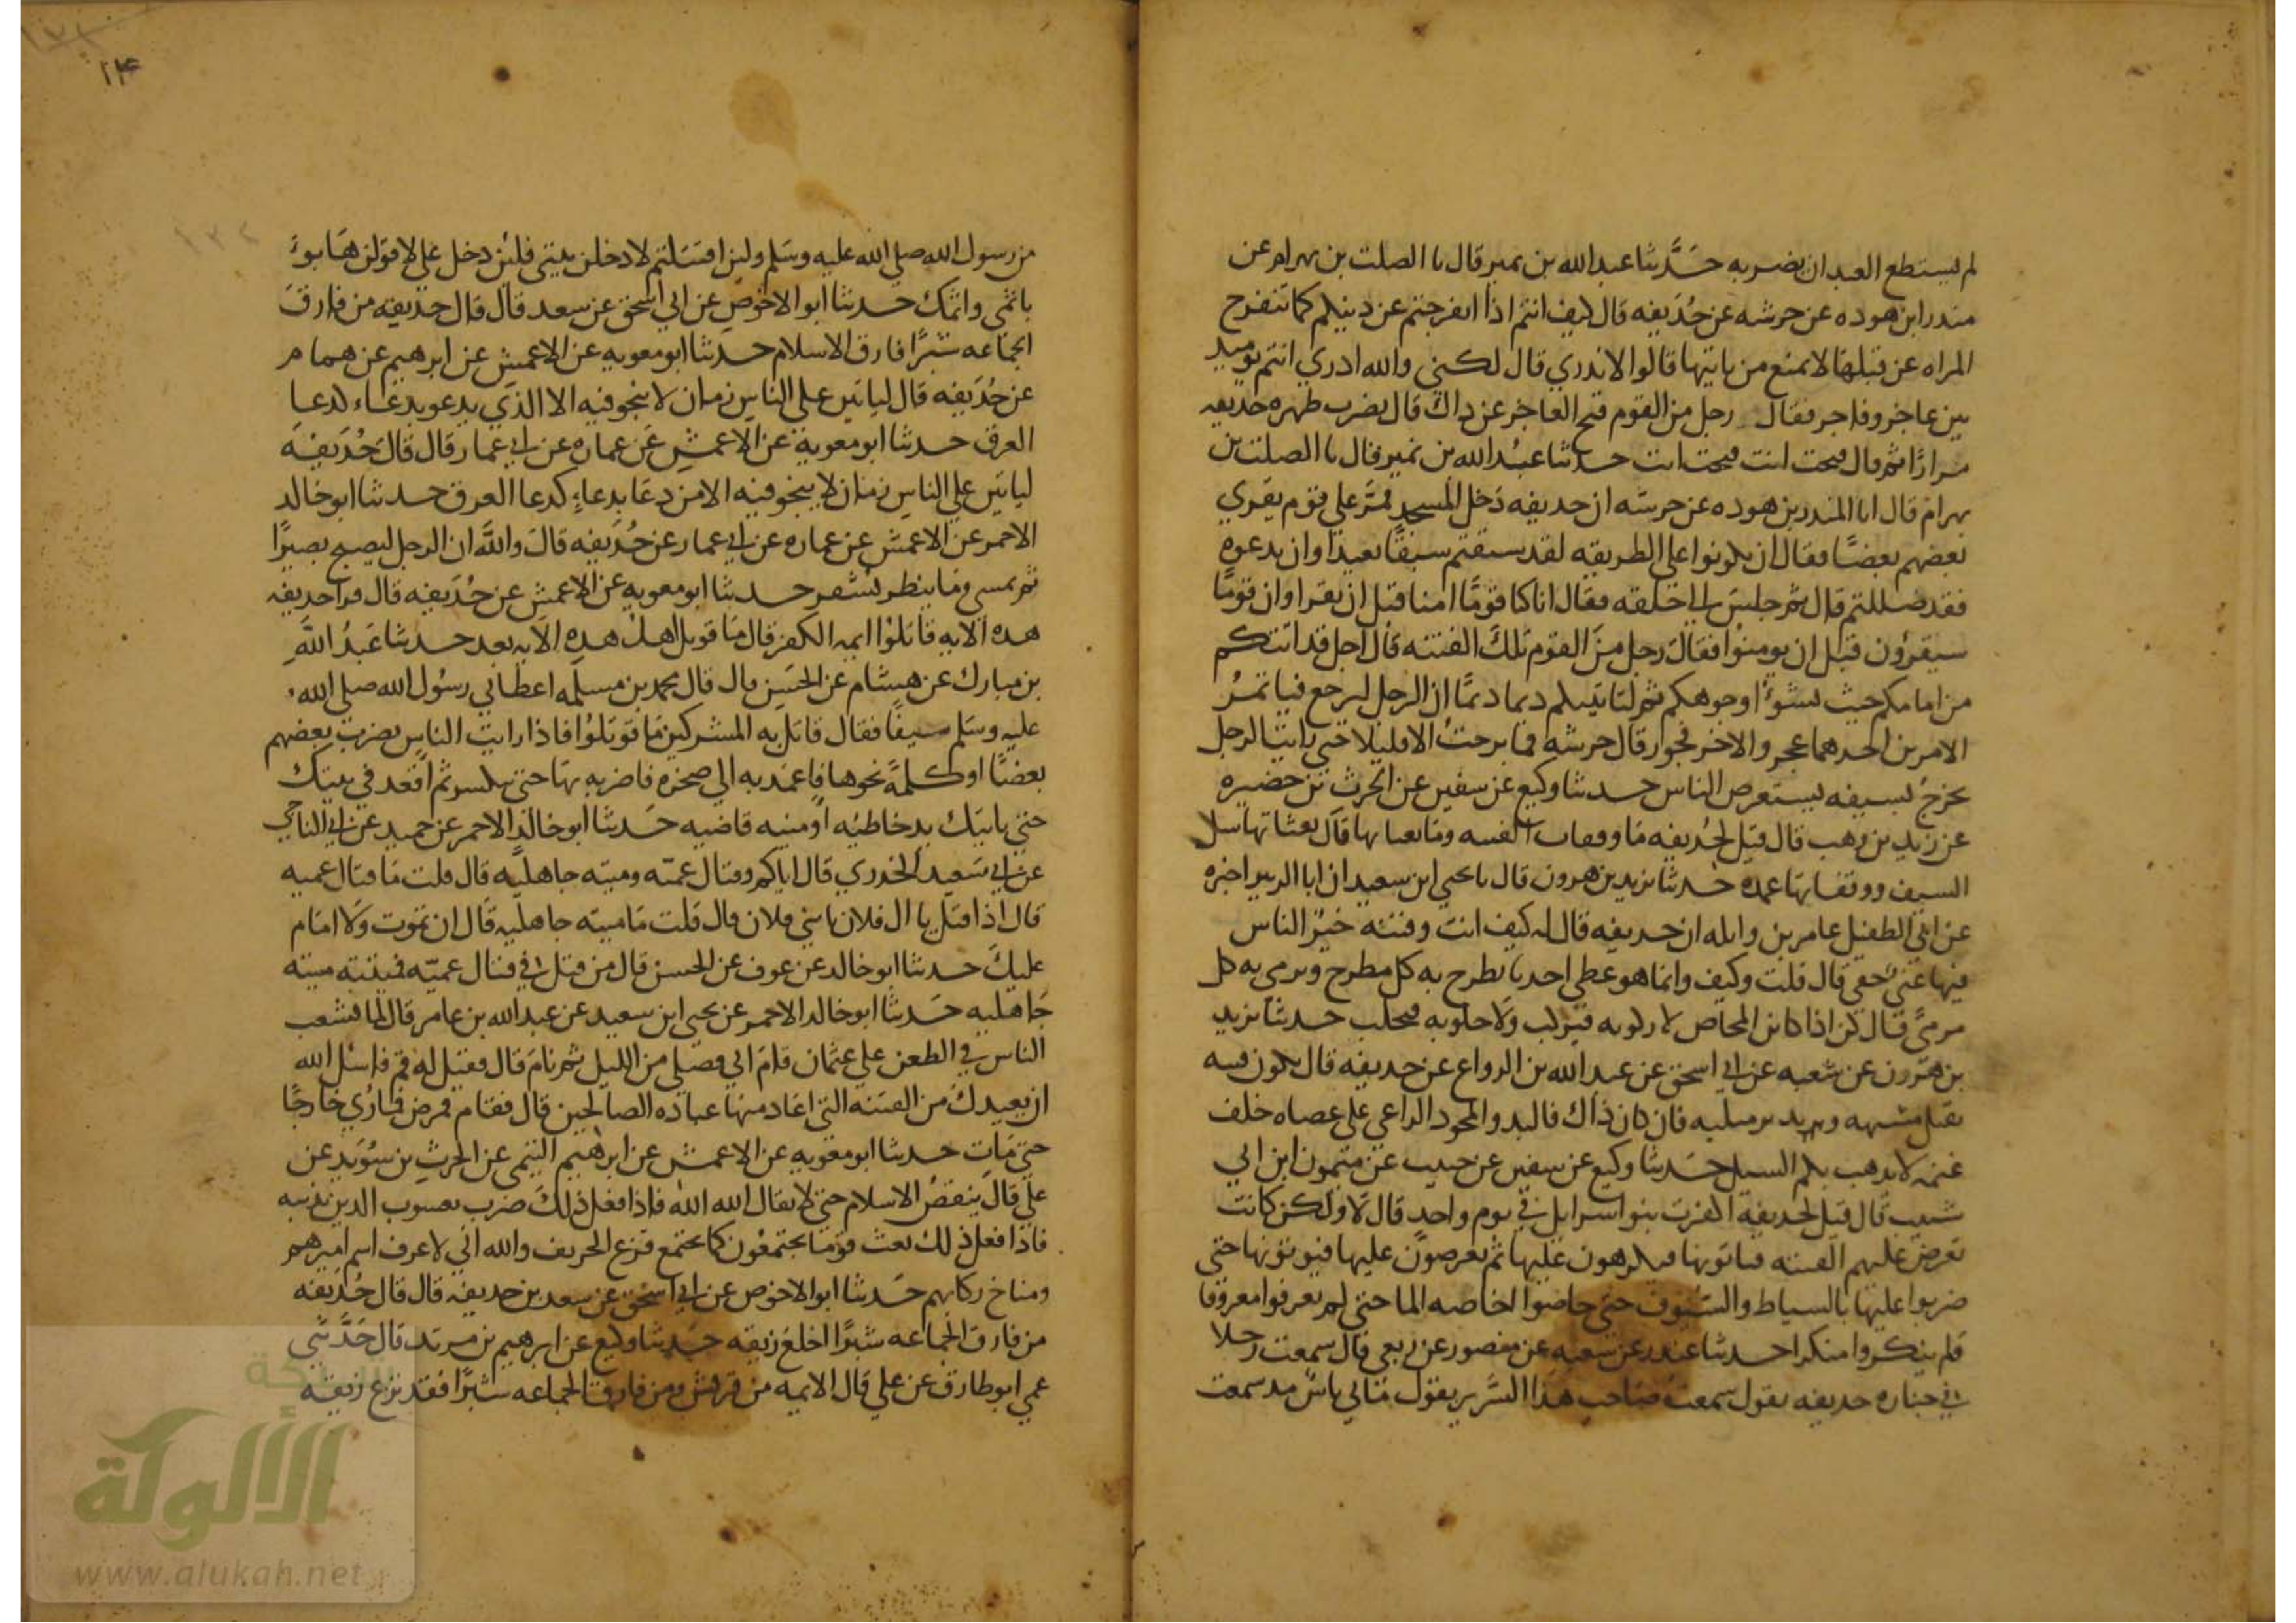 لم يستطع العبد ان يضربه حدثنا عبدالله بن نمير قال نا الصلت بن بهرام عن
منذر ابن هوذه عن خرشه عن حذيفه قال كيف انتم اذا انفرجتم عن دينكم كما تنفرج
المراه عن قبلها لا تمنع من ياتيها قالوا لا ندري قال لكني والله ادري انتم يوميذ
بين عاجز وفاجر فقال رجل من القوم قبح العاجز عن ذاك قال يضرب ظهره حذيفه
مرارا ثم قال قبحت انت قبحت انت حدثنا عبدالله بن نمير قال نا الصلت بن
بهرام قال انا المنذر بن هوذه عن خرشه ان حذيفه دخل المسجد فمر علي قوم يقري
بعضهم بعضا فقال ان تكونوا علي الطريقه لقد سبقتم سبقا بعيدا وان تدعوه
فقد ضللتم قال ثم جلس الي حلقه فقال انا كنا قوما امنا قبل ان نقرا وان قوما
سيقرؤن قبل ان يومنوا فقال رجل من القوم تلك الفتنه قال اجل قد اتتكم
من امامكم حيث تسوء وجوهكم ثم لتاتينكم ديما ديما ان الرجل ليرجع فياتمر
الامرين احدهما عجز والاخر فجور قال خرشه فما برحت الا قليلا حتي رايت الرجل
يخرج بسيفه يستعرض الناس حدثنا وكيع عن سفين عن الحرث بن حضيره
عن زيد بن وهب قال قيل لحذيفه ما وقفات الفتنه وما بعثاتها قال بعثاتها سل
السيف ووقفاتها غمده حدثنا يزيد بن هرون قال نا يحيي ابن سعيد ان ابا الزبير اخبره
عن ابي الطفيل عامر بن واثله ان حذيفه قال له كيف انت وفتنه خير الناس
فيها غني خفي قال قلت وكيف وانما هو عطي احدنا يطرح به كل مطرح ويرمي به كل
مرمي قال كن اذا كابن المخاض لا ركوبه فيركب ولا حلوبه فتحلب حدثنا يزيد
بن هرون عن شعبه عن ابي اسحق عن عبدالله بن الرواع عن حذيفه قال تكون فتنه
تقبل مشبهه وتدبر فان كان ذاك فالبدوا لبود الراعي علي عصاه خلف
غنمه لا يذهب بكم السيل حدثنا وكيع عن سفين عن حبيب عن ميمون ابن ابي
شبيب قال قيل لحذيفه اكفرت بنو اسرايل في يوم واحد قال لا ولكن كانت
تعرض عليهم الفتنه فياتونها فيكرهون عليها ثم يعرضون عليها فيوتونها حتي
ضربوا عليها بالسياط والسيوف حتي خاضوا اخاضه الما حتي لم يعرفوا معروفا
ولم ينكروا منكرا حدثنا غندر عن شعبه عن منصور عن ربعي قال سمعت رجلا
في جنازه حذيفه يقول سمعت صاحب هذا السرير يقول ما بي باس مذ سمعت
من رسول الله صلي الله عليه وسلم ولين اقتتلتم لادخلن بيتي فلين دخل علي لاقولن ها بوء
باثمي واثمك حدثنا ابو الاحوص عن ابي اسحق عن سعد قال قال حذيفه من فارق
الجماعه شبرا فارق الاسلام حدثنا ابو معويه عن الاعمش عن ابرهيم عن همام
عن حذيفه قال لياتين علي الناس زمان لا ينجو فيه الا الذي يدعو بدعاء كدعا
الغرق حدثنا ابو معويه عن الاعمش عن عماره عن ابي عمار قال قال حذيفه
لياتين علي الناس زمان لا ينجو فيه الا من دعا بدعاء كدعا الغرق حدثنا ابو خالد
الاحمر عن الاعمش عن عماره عن ابي عمار عن حذيفه قال والله ان الرجل ليصبح بصيرا
ثم يمسي وما ينظر بشفر حدثنا ابو معويه عن الاعمش عن حذيفه قال قرا حذيفه
هذه الايه قاتلوا ايمه الكفر قال ما قوتل اهل هذه الايه بعد حدثنا عبد الله
بن مبارك عن هشام عن الحسن قال قال محمد بن مسلمه اعطاني رسول الله صلي الله
عليه وسلم سيفا فقال قاتل به المشركين ما قوتلوا فاذا رايت الناس يضرب بعضهم
بعضا او كلمه نحوها فاعمد به الي صخره فاضربه بها حتي ينكسر ثم اقعد في بيتك
حتي ياتيك يد خاطئه او منيه قاضيه حدثنا ابو خالد الاحمر عن حميد عن ابي الناجي
عن ابي سعيد الخدري قال اياكم وقتال عميه وميته جاهليه قال قلت ما قتال عميه
قال اذا قيل يا ال فلان يا بني فلان قال قلت ما ميته جاهليه قال ان تموت ولا امام
عليك حدثنا ابو خالد عن عوف عن الحسن قال من قتل في قتال عميه فميتته ميته
جاهليه حدثنا ابو خالد الاحمر عن يحيي ابن سعيد عن عبدالله بن عامر قال لما تشعب
الناس في الطعن علي عثمان قام ابي فصلي من الليل ثم نام قال فقيل له قم فاسئل الله
ان يعيذك من الفتنه التي اعاذ منها عباده الصالحين قال فقام فمرض فما رئي خارجا
حتي مات حدثنا ابو معويه عن الاعمش عن ابرهيم التيمي عن الحرث بن سويد عن
علي قال ينقص الاسلام حتي لا يقال الله الله فاذا فعل ذلك ضرب يعسوب الدين بذنبه
فاذا فعل ذلك بعث قوما يجتمعون كما يجتمع قزع الخريف والله اني لاعرف اسم اميرهم
ومناخ ركابهم حدثنا ابو الاحوص عن ابي اسحق عن سعد بن حذيفه قال قال حذيفه
من فارق الجماعه شبرا خلع ربقه حدثنا وكيع عن ابرهيم بن مرثد قال حدثني
عمي ابو طارق عن علي قال الايمه من قريش ومن فارق الجماعه شبرا فقد نزع ربقه
١٤
شبكة
الألوكة
www.alukah.net